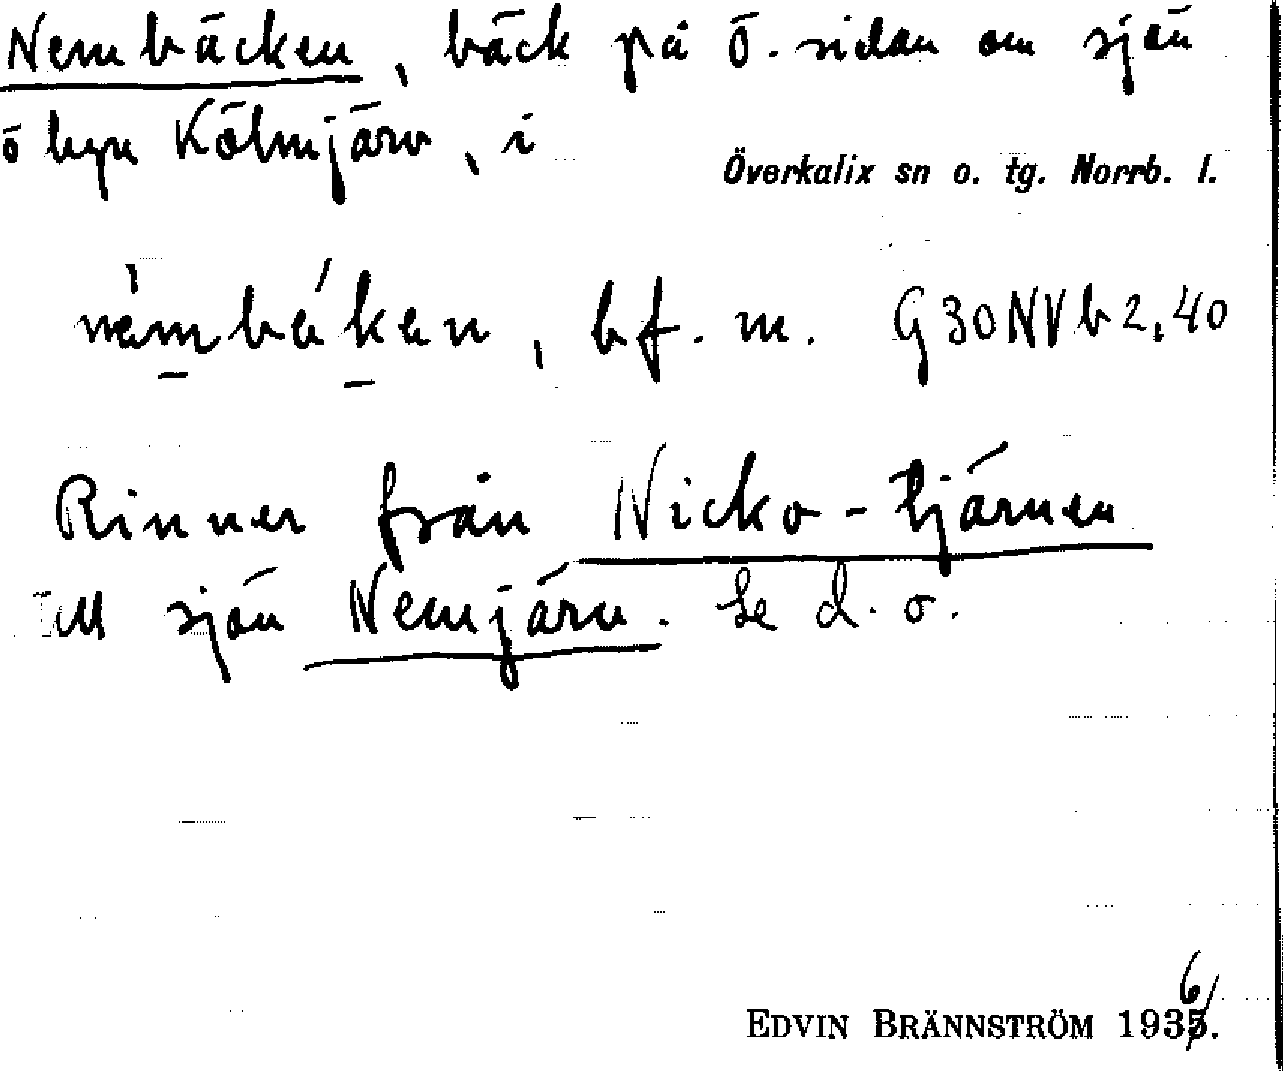 Nembäcken, bäck på Ö. sidan om sjön
o byn Kölmjärv, i
Överkalix sn o. tg. Norrb. l.
bf. m. G30NVb2,40
Rinner från Nicko-tjärnen
till sjön Nemjärv. Se d. o.
6
EDVIN BRÄNNSTRÖM 1935.